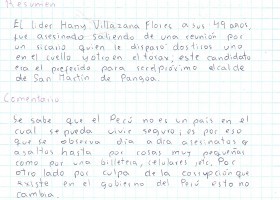 Resumen
EL lider Hany Villazana Flores a sus 49 años,
fue asesinado saliendo de una reunión por
un sicario quien le disparó dos tiros uno
en el cuello y otro en el torax, este candidato
era el preferido para ser el próximo alcalde
de San Martin de Pangoa.
Comentario
Se sabe que el Perú no es un país en el
cual se pueda vivir seguro, es por eso
que se observa día a día asesinatos o
asaltos hasta por cosas muy pequeñas
como por una billetera, celulares, etc. Por
otro lado por culpa de la corrupción que
existe en el gobierno del Perú esto no
cambia.